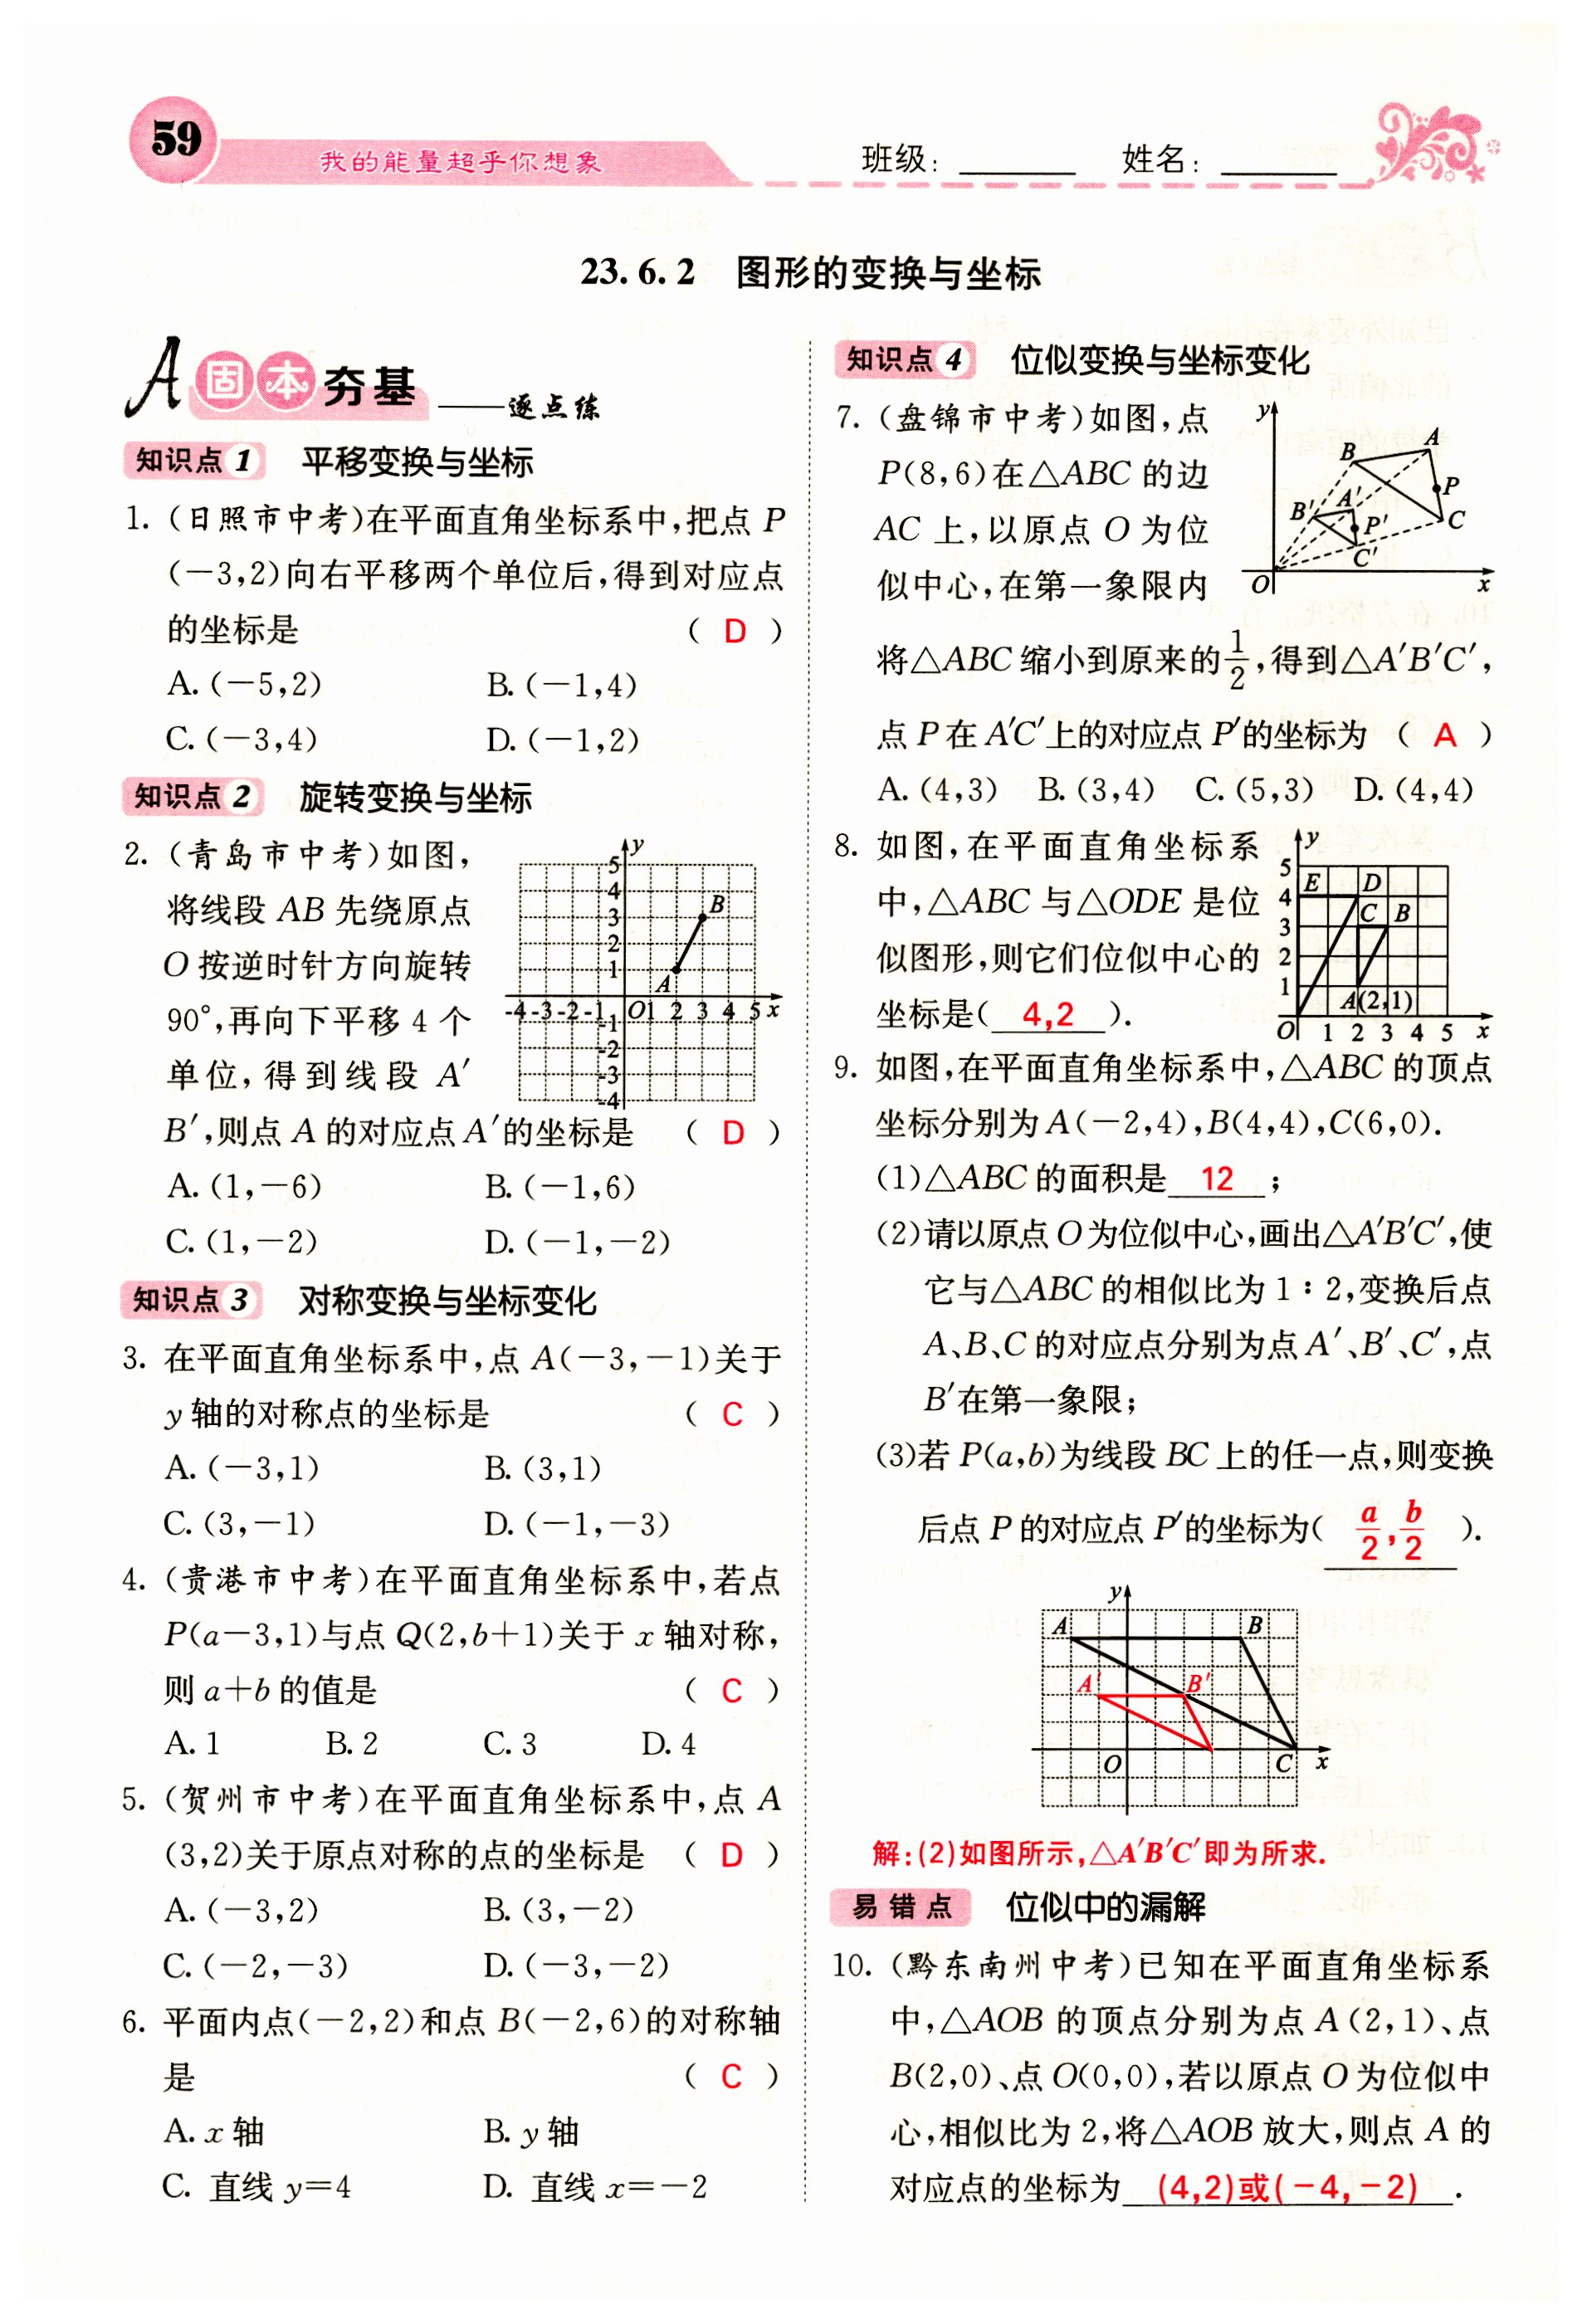 59
我的能量超乎你想象
班级:
姓名:
23.6.2 图形的变换与坐标
A 固本夯基 ——逐点练
知识点1 平移变换与坐标
1. (日照市中考)在平面直角坐标系中,把点 P
(-3,2)向右平移两个单位后,得到对应点
的坐标是 ( D )
A. (-5,2) B. (-1,4)
C. (-3,4) D. (-1,2)
知识点2 旋转变换与坐标
2. (青岛市中考)如图,
将线段 AB 先绕原点
O 按逆时针方向旋转
90°,再向下平移 4 个
单位,得到线段 A′
B′,则点 A 的对应点 A′的坐标是 ( D )
y
5
4
B
3
2
1
A
-4 -3 -2 -1 O 1 2 3 4 5 x
-1
-2
-3
-4
A. (1,-6) B. (-1,6)
C. (1,-2) D. (-1,-2)
知识点3 对称变换与坐标变化
3. 在平面直角坐标系中,点 A(-3,-1)关于
y 轴的对称点的坐标是 ( C )
A. (-3,1) B. (3,1)
C. (3,-1) D. (-1,-3)
4. (贵港市中考)在平面直角坐标系中,若点
P(a-3,1)与点 Q(2,b+1)关于 x 轴对称,
则 a+b 的值是 ( C )
A. 1 B. 2 C. 3 D. 4
5. (贺州市中考)在平面直角坐标系中,点 A
(3,2)关于原点对称的点的坐标是 ( D )
A. (-3,2) B. (3,-2)
C. (-2,-3) D. (-3,-2)
6. 平面内点(-2,2)和点 B(-2,6)的对称轴
是 ( C )
A. x 轴 B. y 轴
C. 直线 y=4 D. 直线 x=-2
知识点4 位似变换与坐标变化
7. (盘锦市中考)如图,点
P(8,6)在△ABC 的边
AC 上,以原点 O 为位
似中心,在第一象限内
将△ABC 缩小到原来的1/2,得到△A′B′C′,
点 P 在 A′C′上的对应点 P′的坐标为 ( A )
y
A
B
P
A′
B′
C
P′
C′
O x
A. (4,3) B. (3,4) C. (5,3) D. (4,4)
8. 如图,在平面直角坐标系
中,△ABC 与△ODE 是位
似图形,则它们位似中心的
坐标是( 4,2 ).
y
5
E D
4
C B
3
2
1
A(2,1)
O 1 2 3 4 5 x
9. 如图,在平面直角坐标系中,△ABC 的顶点
坐标分别为 A(-2,4),B(4,4),C(6,0).
(1)△ABC 的面积是 12 ;
(2)请以原点 O 为位似中心,画出△A′B′C′,使
它与△ABC 的相似比为 1∶2,变换后点
A、B、C 的对应点分别为点 A′、B′、C′,点
B′在第一象限;
(3)若 P(a,b)为线段 BC 上的任一点,则变换
后点 P 的对应点 P′的坐标为( a/2,b/2 ).
y
A B
A′ B′
O C x
解:(2)如图所示,△A′B′C′即为所求.
易错点 位似中的漏解
10. (黔东南州中考)已知在平面直角坐标系
中,△AOB 的顶点分别为点 A(2,1)、点
B(2,0)、点 O(0,0),若以原点 O 为位似中
心,相似比为 2,将△AOB 放大,则点 A 的
对应点的坐标为 (4,2)或(-4,-2) .